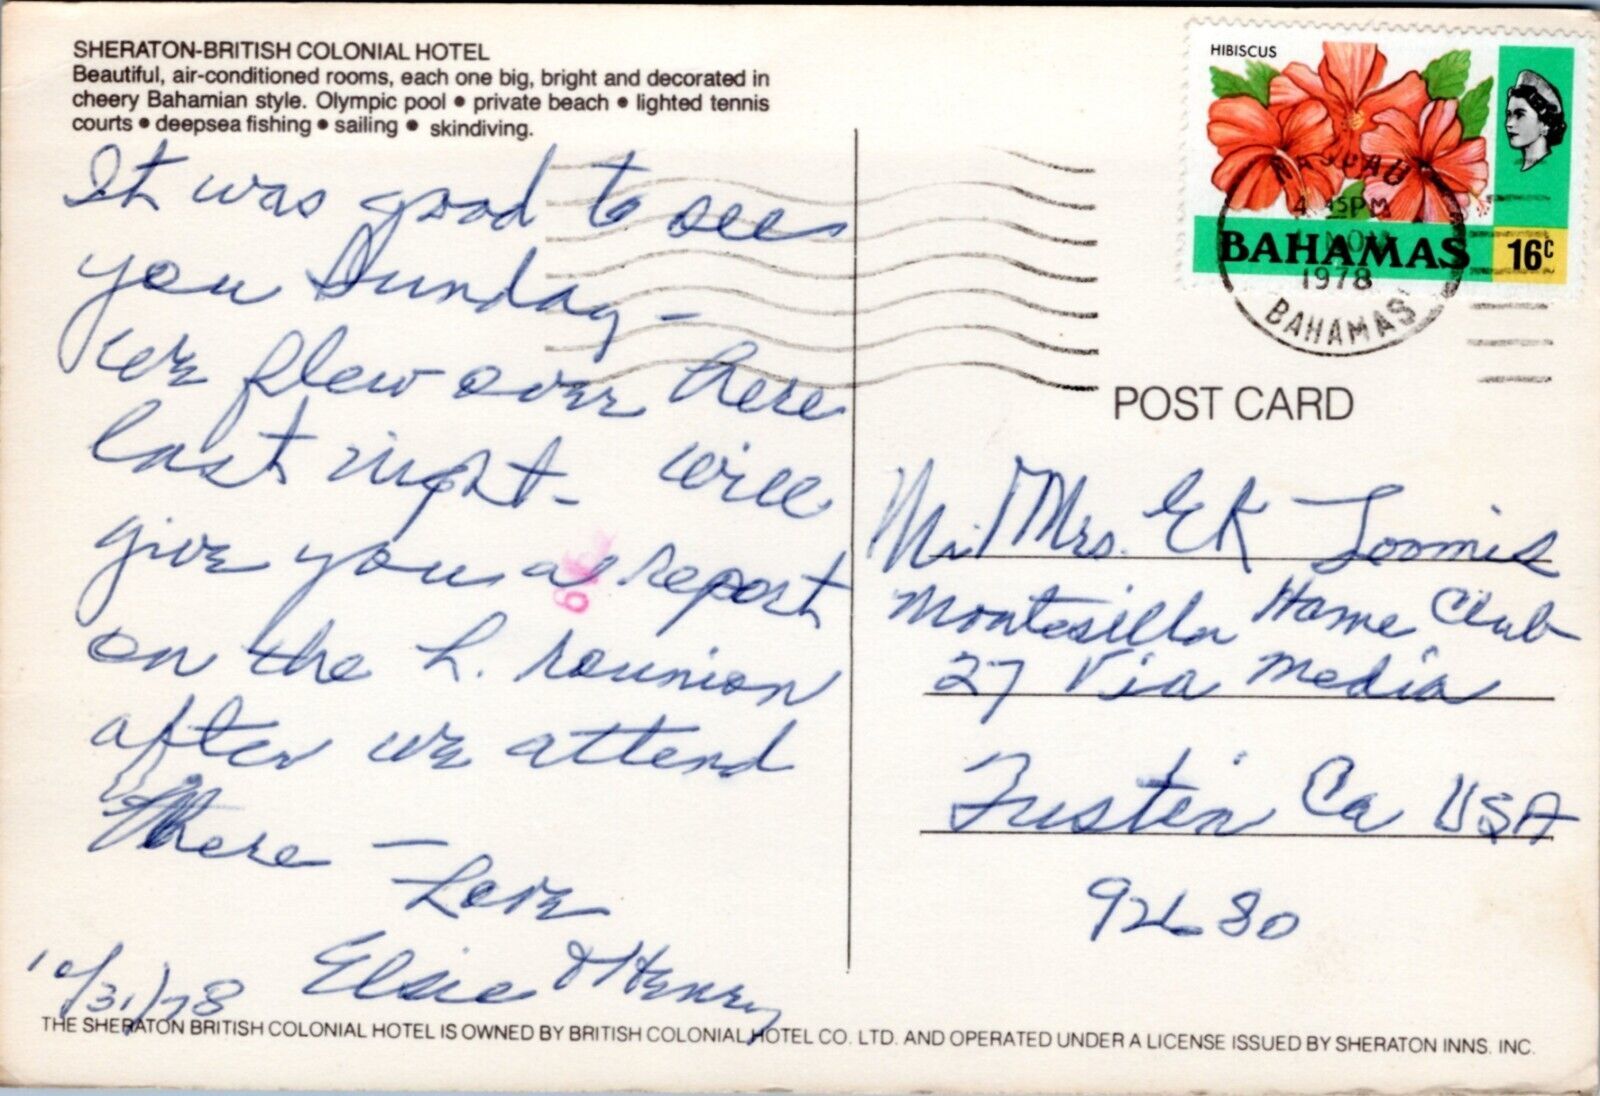 SHERATON-BRITISH COLONIAL HOTEL
Beautiful, air-conditioned rooms, each one big, bright and decorated in
cheery Bahamian style. Olympic pool • private beach • lighted tennis
courts • deepsea fishing • sailing • skindiving.
It was good to see
you Sunday -
We flew over here
last night - will
give you a report
on the L. reunion
after we attend
there -
Love
Elsie & Henry
10/31/78
HIBISCUS
BAHAMAS 16c
NASSAU
4 45PM
1 NOV
1978
BAHAMAS
POST CARD
Mr/Mrs. EK Loomis
Montesilla Home Club
27 Via Media
Tustin Ca USA
92680
THE SHERATON BRITISH COLONIAL HOTEL IS OWNED BY BRITISH COLONIAL HOTEL CO. LTD. AND OPERATED UNDER A LICENSE ISSUED BY SHERATON INNS. INC.